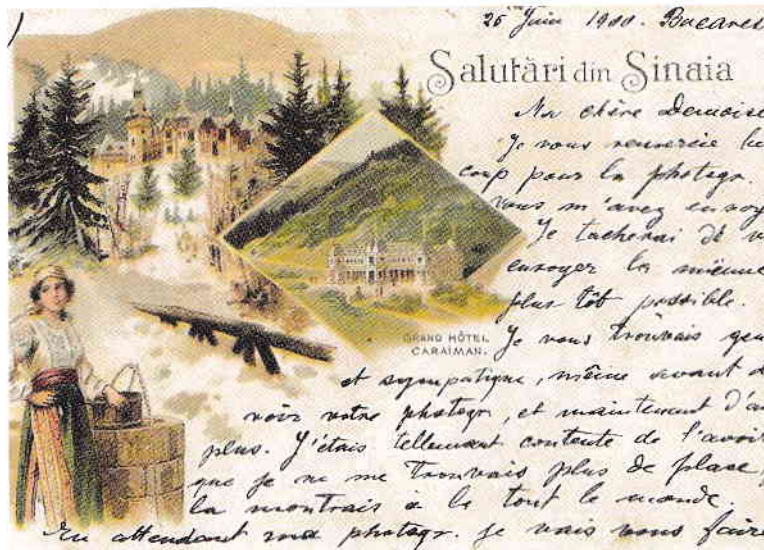 26 Juin 1900. Bucarest
Salutări din Sinaia
Ma chère Demoise
Je vous remercie be
coup pour la photogr.
vous m'avez envoy
Je tacherai de v
envoyer la mienne
plus tôt possible.
GRAND HÔTEL
CARAIMAN.
Je vous trouvais gen
et sympatique, même avant d
voir votre photogr, et maintenant d'au
plus. J'étais tellement contente de l'avoir
que je ne me trouvais plus de place,
la montrais à la tout le monde.
En attendant ma photogr. je vais vous faire